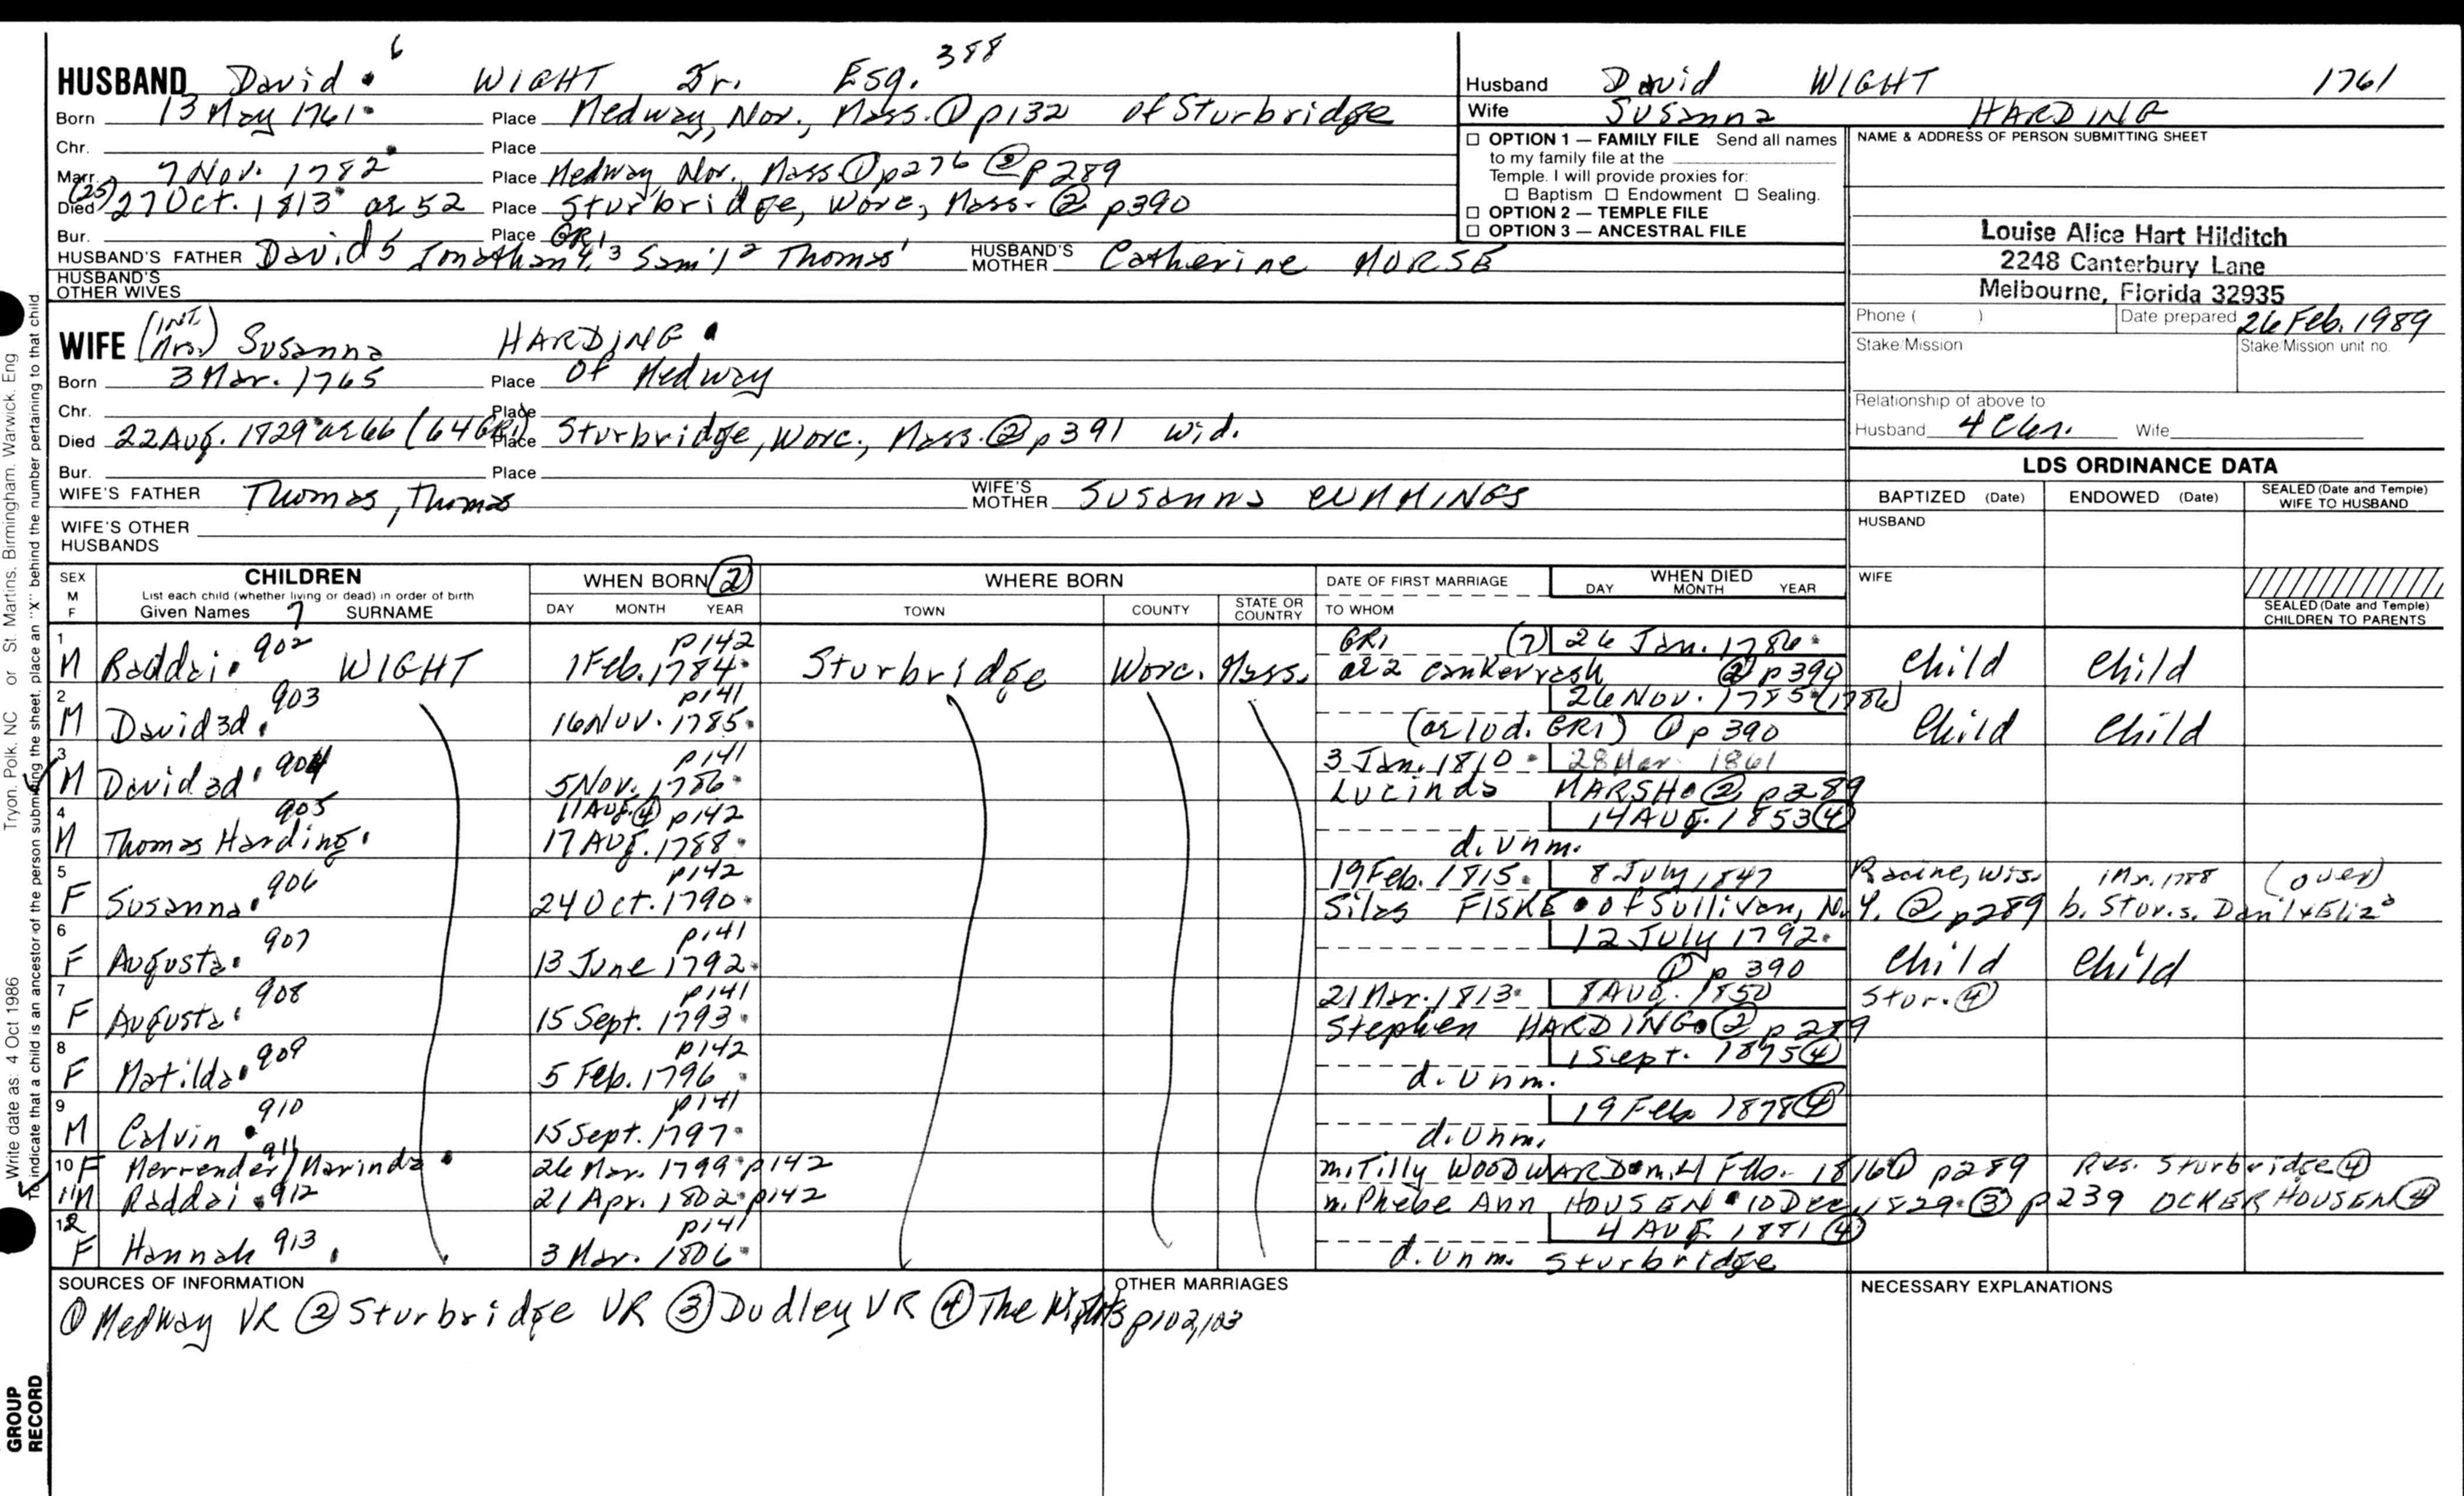 HUSBAND David 6 WIGHT Jr. Esq. 388
Born 13 May 1761 Place Medway, Nor., Mass. ① p132 of Sturbridge
Chr. Place
Marr. 7 Nov. 1782 Place Medway, Nor., Mass. ① p276 ② p289
Died (25) 27 Oct. 1813 ae 52 Place Sturbridge, Worc., Mass. ② p390
Bur. Place GR1
HUSBAND'S FATHER David 5 Jonathan 4, 3 Sam'l 2 Thomas 1 HUSBAND'S MOTHER Catherine MORSE
HUSBAND'S OTHER WIVES
WIFE (INT. Mrs.) Susanna HARDING
Born 3 Mar. 1765 Place Of Medway
Chr. Place
Died 22 Aug. 1829 ae 66 (64 GR1) Place Sturbridge, Worc., Mass. ② p391 Wid.
Bur. Place
WIFE'S FATHER Thomas, Thomas WIFE'S MOTHER Susanna CUMMINGS
WIFE'S OTHER HUSBANDS
Husband David WIGHT 1761
Wife Susanna HARDING
☐ OPTION 1 — FAMILY FILE Send all names
to my family file at the
Temple. I will provide proxies for:
☐ Baptism ☐ Endowment ☐ Sealing.
☐ OPTION 2 — TEMPLE FILE
☐ OPTION 3 — ANCESTRAL FILE
NAME & ADDRESS OF PERSON SUBMITTING SHEET
Louise Alice Hart Hilditch
2248 Canterbury Lane
Melbourne, Florida 32935
Phone ( ) Date prepared 26 Feb. 1989
Stake/Mission Stake/Mission unit no.
Relationship of above to
Husband 4 C6r. Wife
LDS ORDINANCE DATA
BAPTIZED (Date) ENDOWED (Date) SEALED (Date and Temple) WIFE TO HUSBAND
HUSBAND
WIFE
SEALED (Date and Temple) CHILDREN TO PARENTS
SEX M F CHILDREN WHEN BORN ② WHERE BORN DATE OF FIRST MARRIAGE WHEN DIED
List each child (whether living or dead) in order of birth
Given Names 7 SURNAME DAY MONTH YEAR TOWN COUNTY STATE OR COUNTRY TO WHOM DAY MONTH YEAR
1 902 p142 GR1 (7) 26 Jan. 1786
M Raddai WIGHT 1 Feb. 1784 Sturbridge Worc. Mass. ae 2 cankerrash ② p390 Child Child
2 903 p141 26 Nov. 1785 (1786)
M David 3d 16 Nov. 1785 (ae 10d. GR1) ① p390 Child Child
3 904 p141 3 Jan. 1810 28 Mar 1861
M David 3d 5 Nov. 1786 Lucinda MARSH ② p289
4 905 11 Aug. ④ p142 14 Aug. 1853 ④
M Thomas Harding 17 Aug. 1788 d. unm.
5 906 p142 19 Feb. 1815 8 July 1847 Racine, Wis. 1788 (over)
F Susanna 24 Oct. 1790 Silas FISKE of Sullivan, N.Y. ② p289 b. Stur. s. Dan'l & Eliza
6 907 p141 12 July 1792
F Augusta 13 June 1792 ① p390 Child Child
7 908 p141 21 Mar. 1813 8 Aug. 1850 Stur. ④
F Augusta 15 Sept. 1793 Stephen HARDING ② p289
8 909 p142 1 Sept. 1875 ④
F Matilda 5 Feb. 1796 d. unm.
9 910 p141 19 Feb 1878 ④
M Calvin 15 Sept. 1797 d. unm.
10 F Merrender/Marinda 911 26 Mar. 1799 p142 m. Tilly WOODWARD m. 4 Feb. 1816 ① p289 Res. Sturbridge ④
11 M Raddai 912 21 Apr. 1802 p142 m. Phebe Ann HOUSEN 10 Dec. 1829 ③ p239 OCKERHOUSEN ④
12 p141 4 Aug. 1881 ④
F Hannah 913 3 Mar. 1806 d. unm. Sturbridge
SOURCES OF INFORMATION OTHER MARRIAGES NECESSARY EXPLANATIONS
① Medway VR ② Sturbridge VR ③ Dudley VR ④ The Wights p102,103
Write date as: 4 Oct 1986 Tryon, Polk, NC or St. Martins, Birmingham, Warwick, Eng
To indicate that a child is an ancestor of the person submitting the sheet, place an "X" behind the number pertaining to that child.
GROUP RECORD